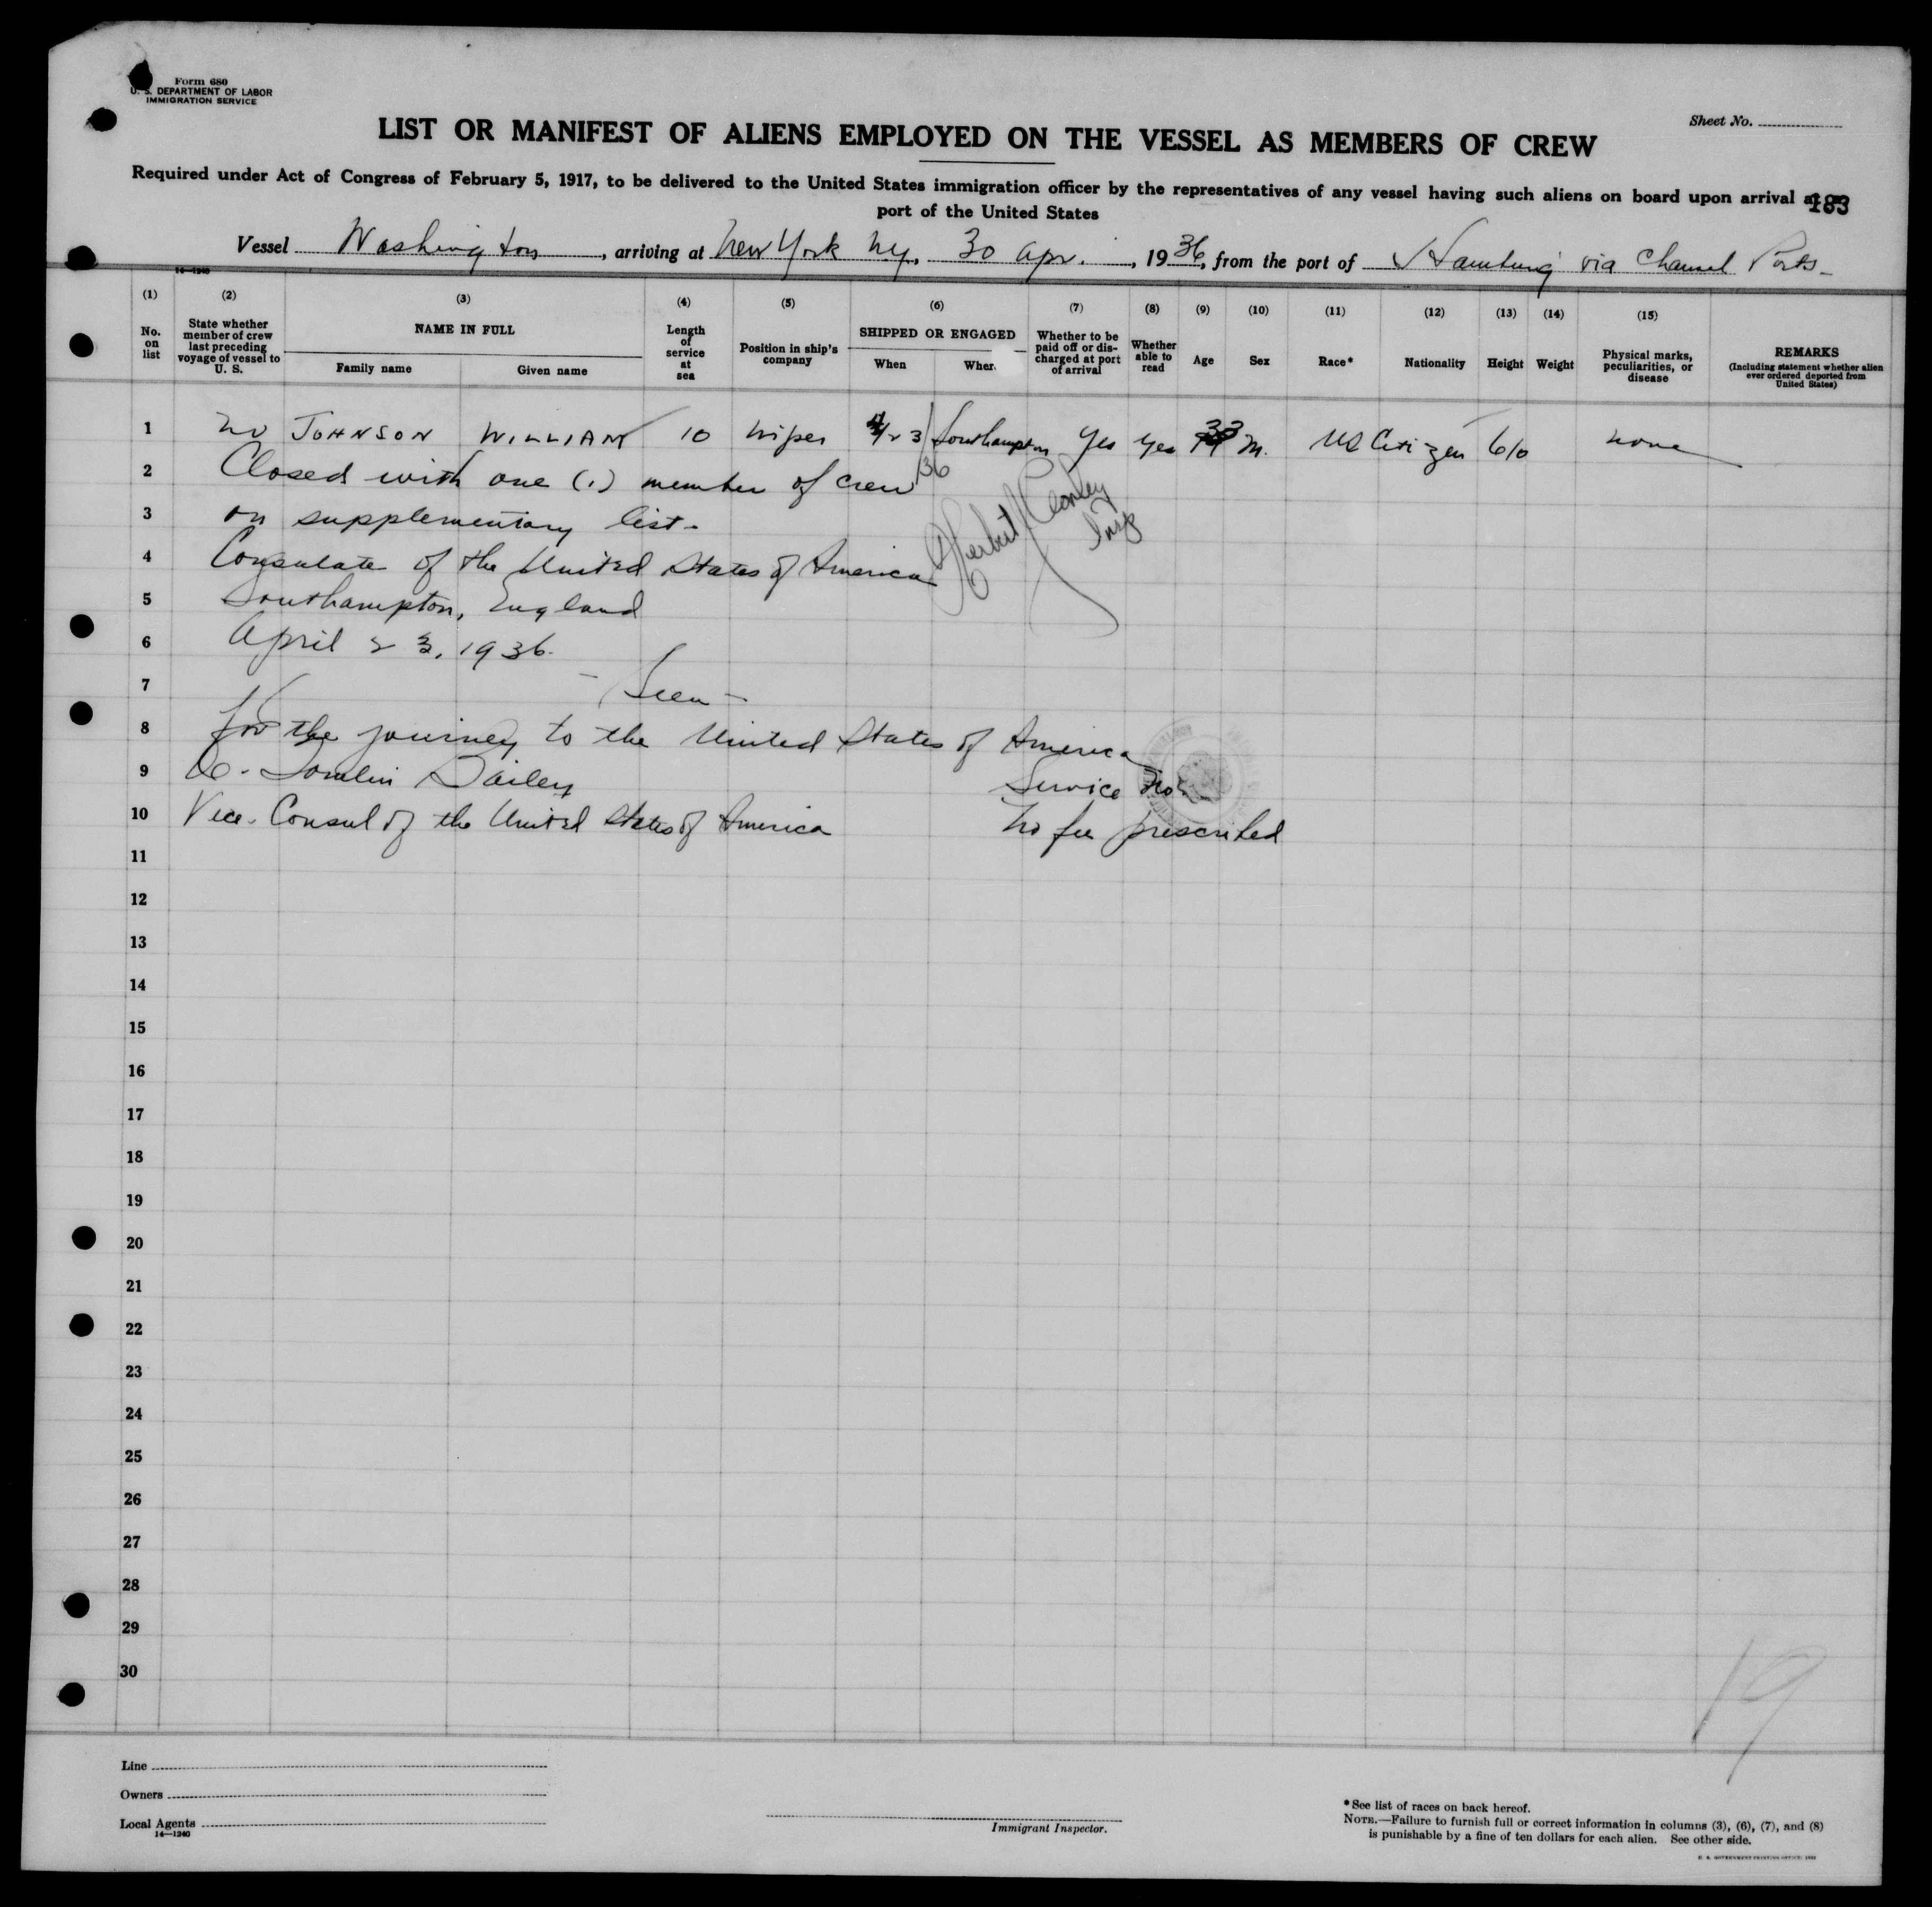 Form 680
U. S. DEPARTMENT OF LABOR
IMMIGRATION SERVICE
Sheet No.
LIST OR MANIFEST OF ALIENS EMPLOYED ON THE VESSEL AS MEMBERS OF CREW
Required under Act of Congress of February 5, 1917, to be delivered to the United States immigration officer by the representatives of any vessel having such aliens on board upon arrival at
183
port of the United States
Vessel Washington, arriving at New York NY, 30 Apr., 1936, from the port of Hamburg via Channel Ports-
14—1240
(1) (2) (3) (4) (5) (6) (7) (8) (9) (10) (11) (12) (13) (14) (15)
No. on list
State whether member of crew last preceding voyage of vessel to U. S.
NAME IN FULL
Family name
Given name
Length of service at sea
Position in ship's company
SHIPPED OR ENGAGED
When
Wher
Whether to be paid off or discharged at port of arrival
Whether able to read
Age
Sex
Race*
Nationality
Height
Weight
Physical marks, peculiarities, or disease
REMARKS
(Including statement whether alien ever ordered deported from United States)
1 No JOHNSON WILLIAM 10 Wiper 4/23/36 Southampton Yes Yes 33 M. US Citizen 6/0 none
2 Closed with one (1) member of crew
3 on supplementary list-
Herbert
Insp
4 Consulate of the United States of America
5 Southampton, England
6 April 23, 1936.
7 - Seen -
8 for the journey to the United States of America
9 Tomlin Bailey Service No.
10 Vice-Consul of the United States of America No fee prescribed
11
12
13
14
15
16
17
18
19
20
21
22
23
24
25
26
27
28
29
30
19
Line
Owners
Local Agents
14—1240
Immigrant Inspector.
*See list of races on back hereof.
NOTE.—Failure to furnish full or correct information in columns (3), (6), (7), and (8)
is punishable by a fine of ten dollars for each alien. See other side.